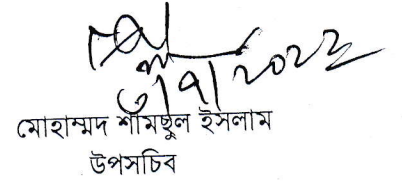 ৩/৭/২০২২
মোহাম্মদ শামছুল ইসলাম
উপসচিব